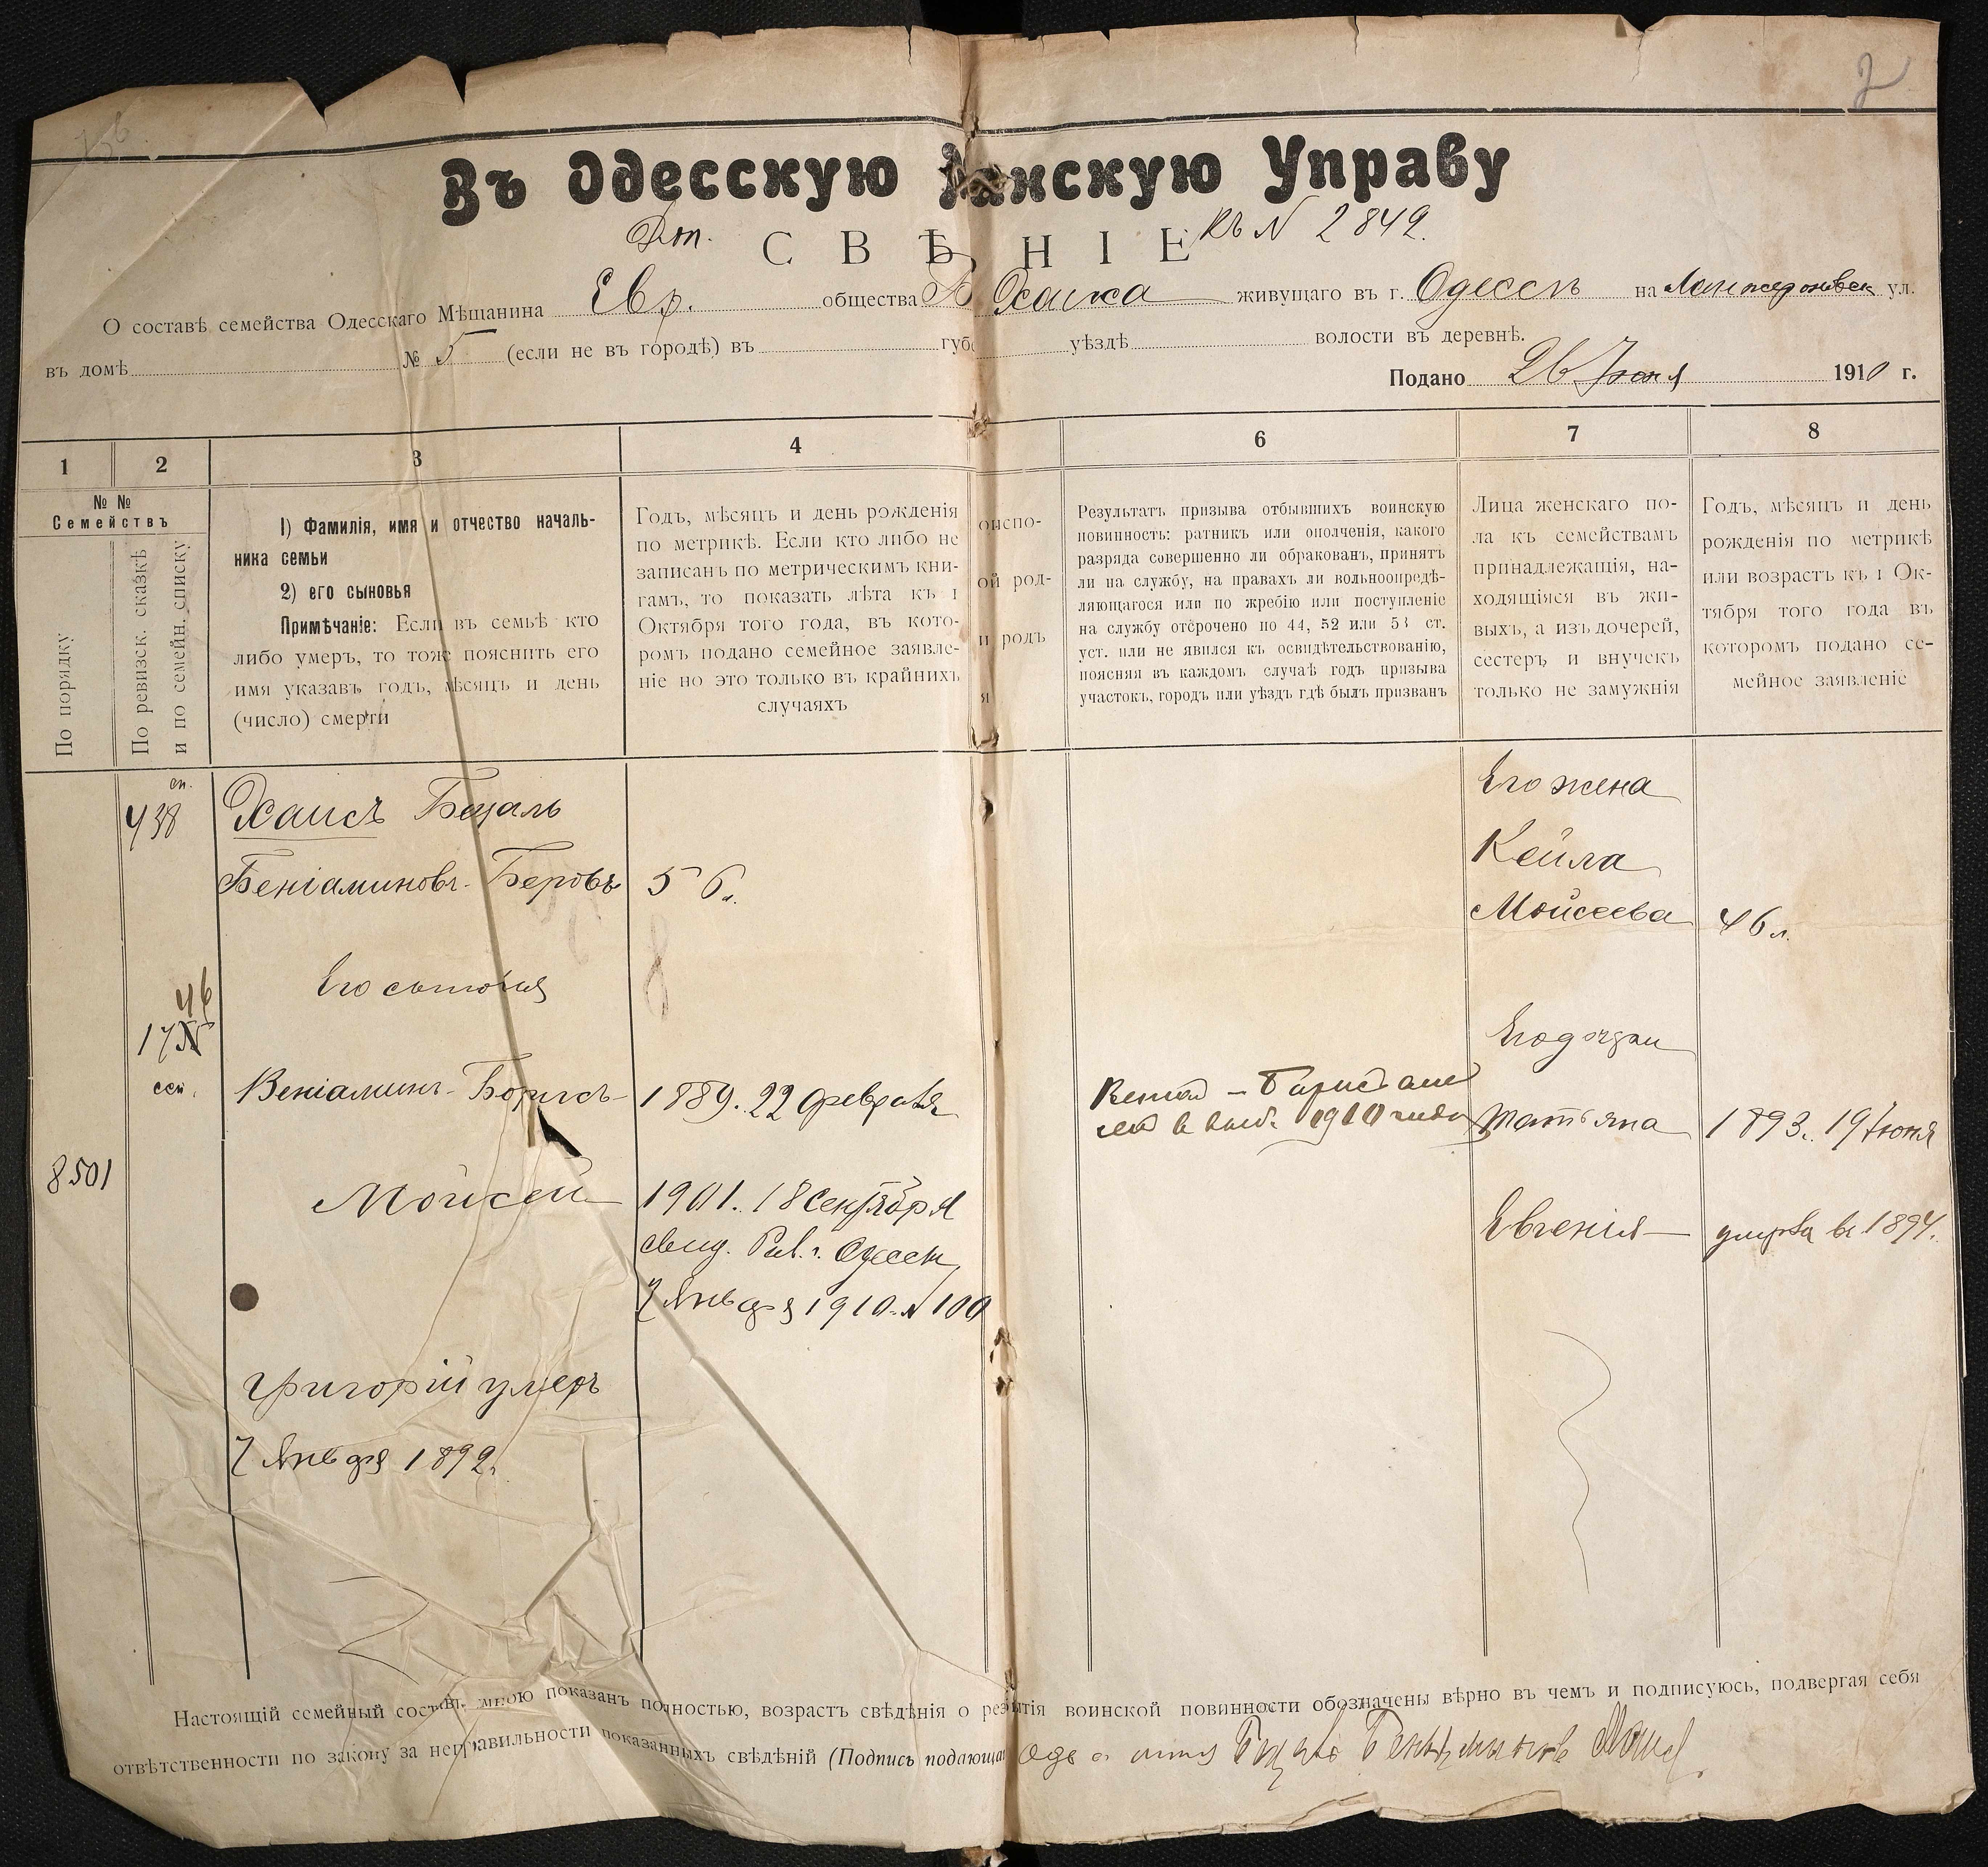 2
Въ Одесскую нскую Управу
Доп. СВѢ НІЕ къ N 2849.
О составѣ семейства Одесскаго Мѣщанина Евр. общества Б. Хаиса живущаго въ г. Одессѣ на Ланжероновск ул.
въ домѣ № 5 (если не въ городѣ) въ губ уѣздѣ волости въ деревнѣ.
Подано 26 Іюня 1910 г.
1 2 3 4 6 7 8
№ №
Семействъ
По порядку
По ревизск. сказкѣ
и по семейн. списку
1) Фамилія, имя и отчество началь-
ника семьи
2) его сыновья
Примѣчаніе: Если въ семьѣ кто
либо умеръ, то тоже пояснить его
имя указавъ годъ, мѣсяцъ и день
(число) смерти
Годъ, мѣсяцъ и день рожденія
по метрикѣ. Если кто либо не
записанъ по метрическимъ кни-
гамъ, то показать лѣта къ 1
Октября того года, въ кото-
ромъ подано семейное заявле-
ніе но это только въ крайнихъ
случаяхъ
оиспо-
ой род-
и родъ
я
Результатъ призыва отбывшихъ воинскую
повинность: ратникъ или ополченія, какого
разряда совершенно ли обракованъ, принятъ
ли на службу, на правахъ ли вольноопредѣ-
ляющагося или по жребію или поступленіе
на службу отсрочено по 44, 52 или 53 ст.
уст. или не явился къ освидѣтельствованію,
поясняя въ каждомъ случаѣ годъ призыва
участокъ, городъ или уѣздъ гдѣ былъ призванъ
Лица женскаго по-
ла къ семействамъ
принадлежащія, на-
ходящіяся въ жи-
выхъ, а изъ дочерей,
сестеръ и внучекъ
только не замужнія
Годъ, мѣсяцъ и день
рожденія по метрикѣ
или возрастъ къ 1 Ок-
тября того года въ
которомъ подано се-
мейное заявленіе
сп.
438
Хаисъ Бецаль
Беніаминовъ-Беровъ 56 л.
Его жена
Кейла
Мойсеева 46 л.
Его сыновья
46
17
сем.
Веніаминъ-Борисъ 1889. 22 февраля
1910
Его дочери
Татьяна 1893. 19 Іюня
8501
Мойсей 1901. 18 Сентября
свид. Рав. г. Одессы
7 Января 1910 N 100
Евгенія умерла въ 1894.
Григорій умеръ
7 Января 1892.
Настоящій семейный составъ мною показанъ полностью, возрастъ свѣдѣнія о рез ытія воинской повинности обозначены вѣрно въ чемъ и подписуюсь, подвергая себя
отвѣтственности по закону за неправильности показанныхъ свѣдѣній (Подпись подающа